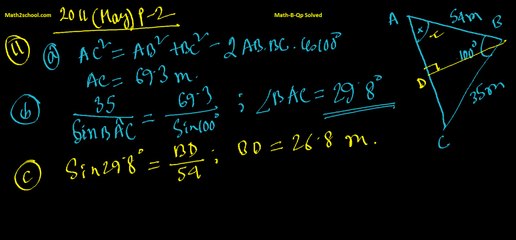 Math2school.com
Math-B-Qp Solved
2011 (May) P-2
(11) (a) AC² = AB² + BC² - 2AB.BC.Cos100°
AC = 69.3 m.
(b) 35/SinBÂC = 69.3/Sin100° ; ∠BAC = 29.8°
(c) Sin29.8° = BD/54 ; BD = 26.8 m.
A
54m
B
x
100°
D
35m
C